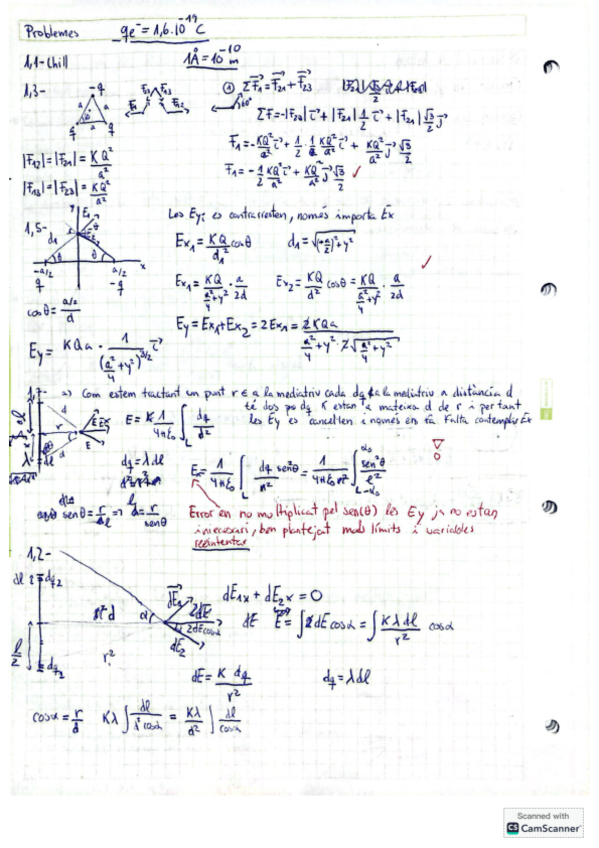 Problemes   qe⁻ = 1,6·10⁻¹⁹ C
1,1- Chill   1Å = 10⁻¹⁰ m
1,3-
-q
a a
60°
q a q
F₁₃ F₂₃
F₁₂
60°
① ΣF₁ = F₂₁ + F₂₃
ΣF = -|F₂₁| i + |F₂₁| 1/2 i + |F₂₁| √3/2 j
|F₁₂| = |F₂₁| = KQ²/a²
F₁ = -KQ²/a² i + 1/2 · KQ²/a² i + KQ²/a² j √3/2
|F₁₃| = |F₂₃| = KQ²/a²
F₁ = -1/2 KQ²/a² i + KQ²/a² j √3/2 ✓
Les Eyi es contraresten, només importa Ex
1,5-
y E₁ θ
d₁
θ θ x
-a/2 a/2
q -q
Ex₁ = KQ/d₁² cosθ   d₁ = √((a/2)² + y²)
✓
Ex₁ = KQ/(a²/4 + y²) · a/2d   Ex₂ = KQ/d² cosθ = KQ/(a²/4 + y²) · a/2d
cosθ = (a/2)/d
Ey = Ex₁ + Ex₂ = 2Ex₁ = 2KQa/((a²/4 + y²) · 2√(a²/4 + y²))
Ey = KQa · 1/(a²/4 + y²)^(3/2) i
1,7- a) Com estem tractant un punt r ∈ a la mediatriu cada dq a la mediatriu a distància d
té dos la mateixa d de r i per tant
les Ey es cancel·len i només en fa falta contemplar Ex
d r E Ex E
λ dl d
E = 1/4πε₀ ∫L dq/d²
dq = λdl
Ex = 1/4πε₀ ∫L dq senθ/r² = 1/4πε₀r² ∫ sen²θ/l²
α₀
-α₀
senθ = r/d => d = r/senθ
Error en no multiplicat pel sen(θ) les Ey ja no estan
innecesari, ben plantejat mals límits i variables
reeintentar
1,2-
dl dq₂
l/2
dq₂
d α
r
dE₁ 2dE
α 2dE cosα
dE₂
dE₁x + dE₂x = 0
dE E = ∫2dE cosα = ∫ Kλdl/r² cosα
dE = K dq/r²   dq = λdl
cosα = r/d   Kλ ∫ dl/d² cosα = Kλ/d² ∫ dl/cosα
Scanned with
CS CamScanner